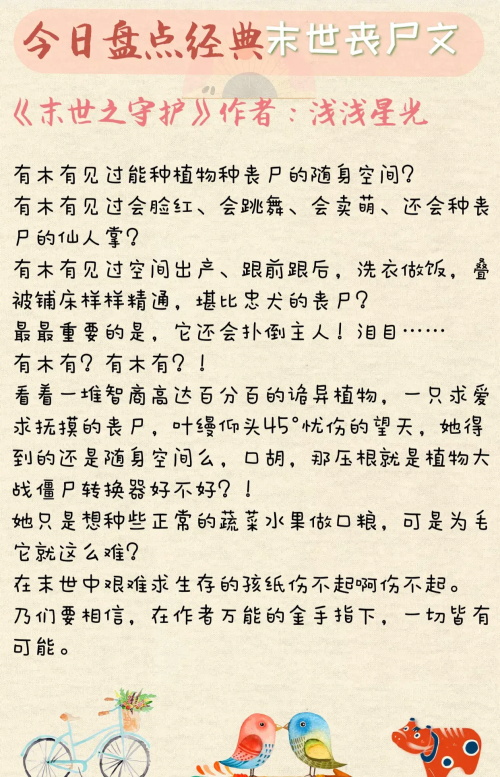 今日盘点经典末世丧尸文
《末世之守护》作者：浅浅星光
有木有见过能种植物种丧尸的随身空间？
有木有见过会脸红、会跳舞、会卖萌、还会种丧
尸的仙人掌？
有木有见过空间出产、跟前跟后，洗衣做饭，叠
被铺床样样精通，堪比忠犬的丧尸？
最最重要的是，它还会扑倒主人！泪目……
有木有？有木有？！
看着一堆智商高达百分百的诡异植物，一只求爱
求抚摸的丧尸，叶缦仰头45°忧伤的望天，她得
到的还是随身空间么，口胡，那压根就是植物大
战僵尸转换器好不好？！
她只是想种些正常的蔬菜水果做口粮，可是为毛
它就这么难？
在末世中艰难求生存的孩纸伤不起啊伤不起。
乃们要相信，在作者万能的金手指下，一切皆有
可能。